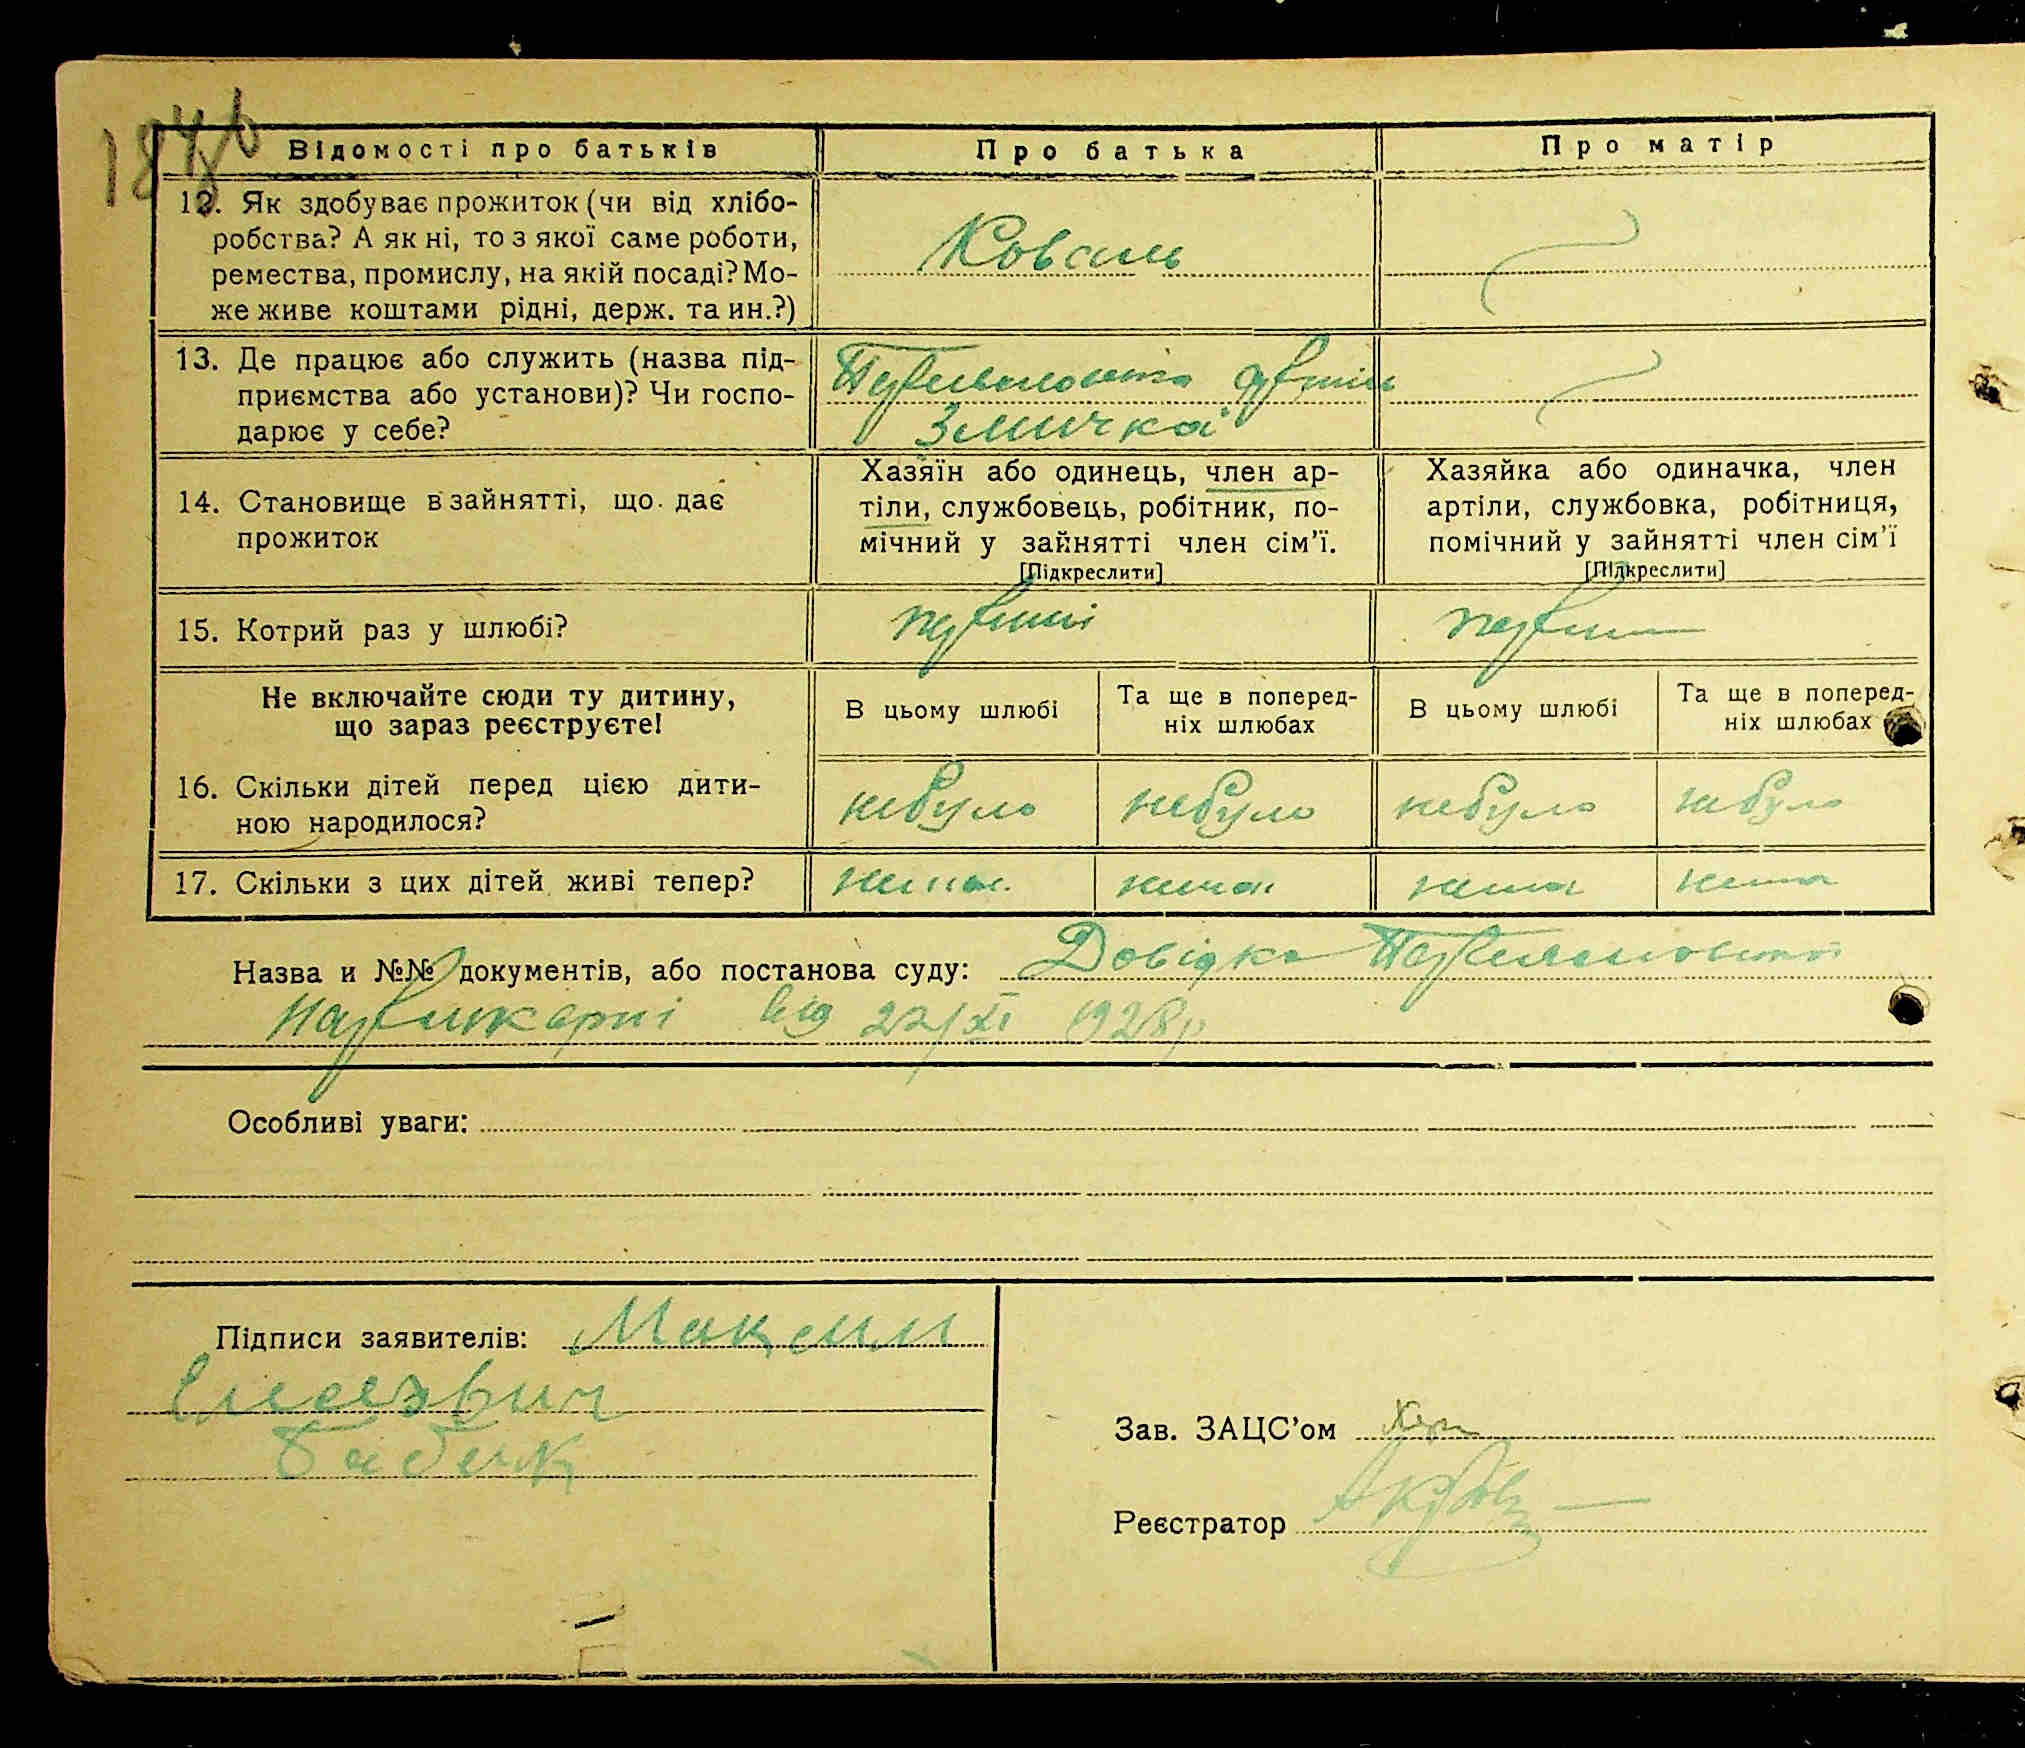 Відомості про батьків
Про батька
Про матір
12. Як здобуває прожиток (чи від хлібо-
робства? А як ні, то з якої саме роботи,
ремества, промислу, на якій посаді? Мо-
же живе коштами рідні, держ. та ин.?)
Коваль
13. Де працює або служить (назва під-
приємства або установи)? Чи госпо-
дарює у себе?
Змичка
14. Становище в зайнятті, що дає
прожиток
Хазяїн або одинець, член ар-
тіли, службовець, робітник, по-
мічний у зайнятті член сім’ї.
[Підкреслити]
Хазяйка або одиначка, член
артіли, службовка, робітниця,
помічний у зайнятті член сім’ї
[Підкреслити]
15. Котрий раз у шлюбі?
перший
перший
Не включайте сюди ту дитину,
що зараз реєструєте!
В цьому шлюбі
Та ще в поперед-
ніх шлюбах
В цьому шлюбі
Та ще в поперед-
ніх шлюбах
16. Скільки дітей перед цією дити-
ною народилося?
небуло
небуло
небуло
небуло
17. Скільки з цих дітей живі тепер?
нема
нема
нема
нема
Назва и №№ документів, або постанова суду: Довідка
від 22/XI 1928р
Особливі уваги:
Підписи заявителів: Максим
Елисеэвич
Бабенк
Зав. ЗАЦС’ом
Реєстратор